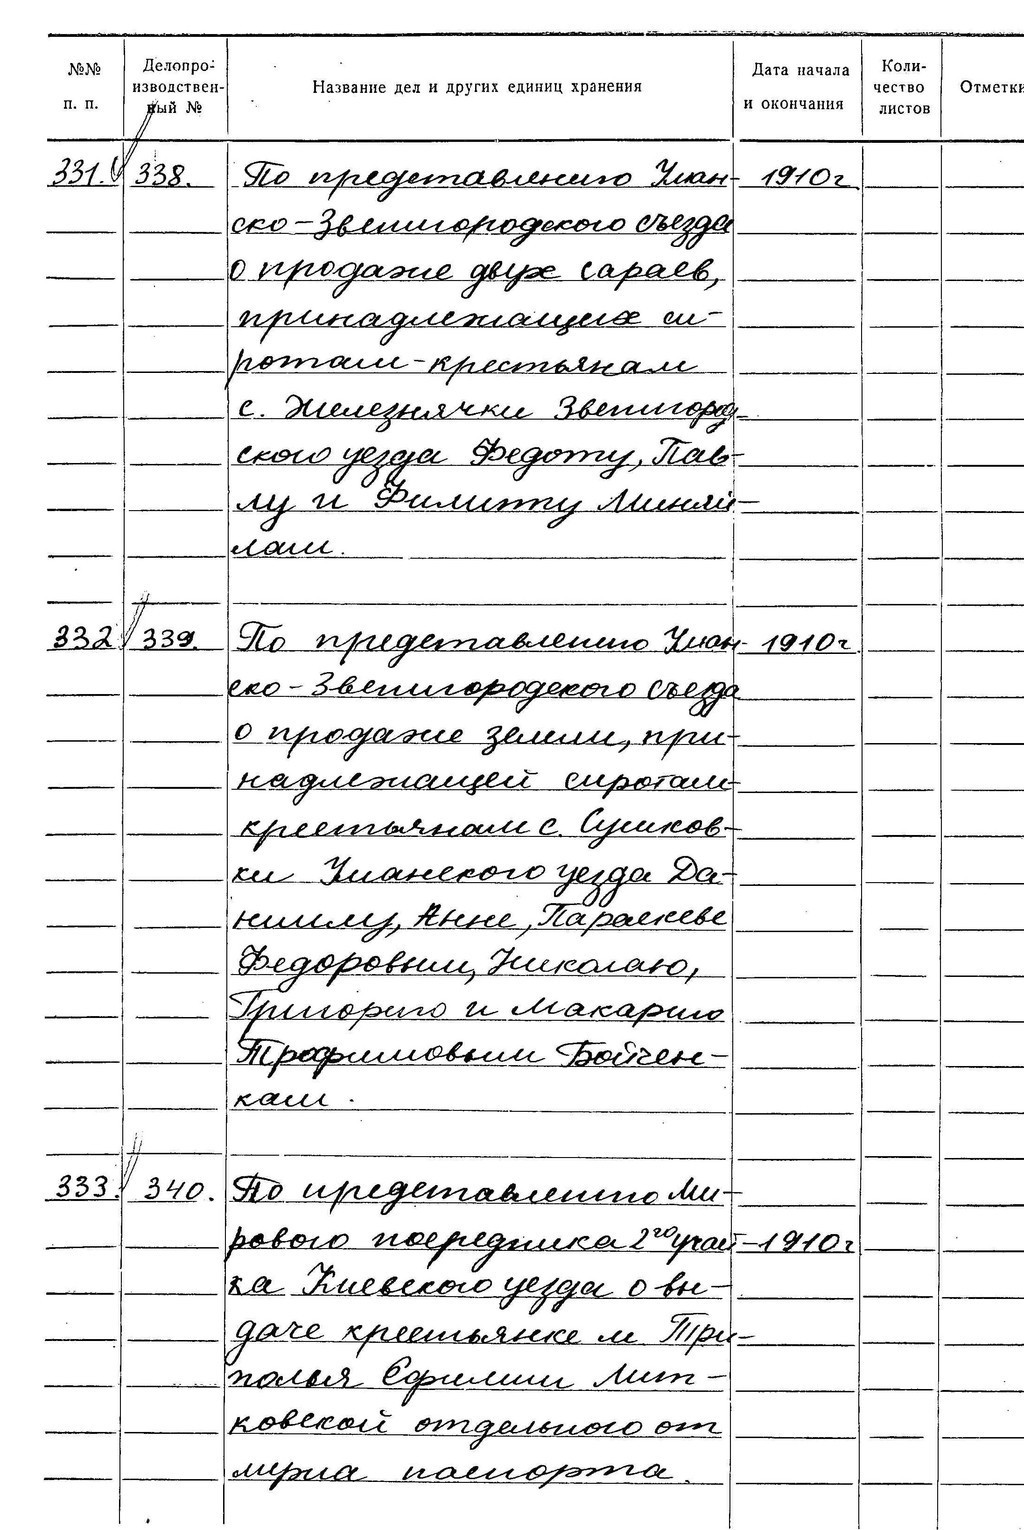 №№ п. п. Делопроизводственный № Название дел и других единиц хранения Дата начала и окончания Количество листов Отметки
331. 338. По представлению Уман- 1910г.
ско-Звенигородского съезда
о продаже двух сараев,
принадлежащих си-
ротам-крестьянам
с. Железнячки Звенигород-
ского уезда Федоту, Пав-
лу и Филиппу Миняй-
лам.
332 339. По представлению Уман- 1910г
ско-Звенигородского съезда
о продаже земли, при-
надлежащей сиротам-
крестьянам с. Сушков-
ки Уманского уезда Да-
ниилу, Анне, Параскеве
Федоровым, Николаю,
Григорию и Макарию
Трофимовым Бойчен-
кам.
333. 340. По представлению Ми-
рового посредника 2го участ- 1910г
ка Киевского уезда о вы-
даче крестьянке м. Три-
полья Ефимии
отдельного от
мужа паспорта.